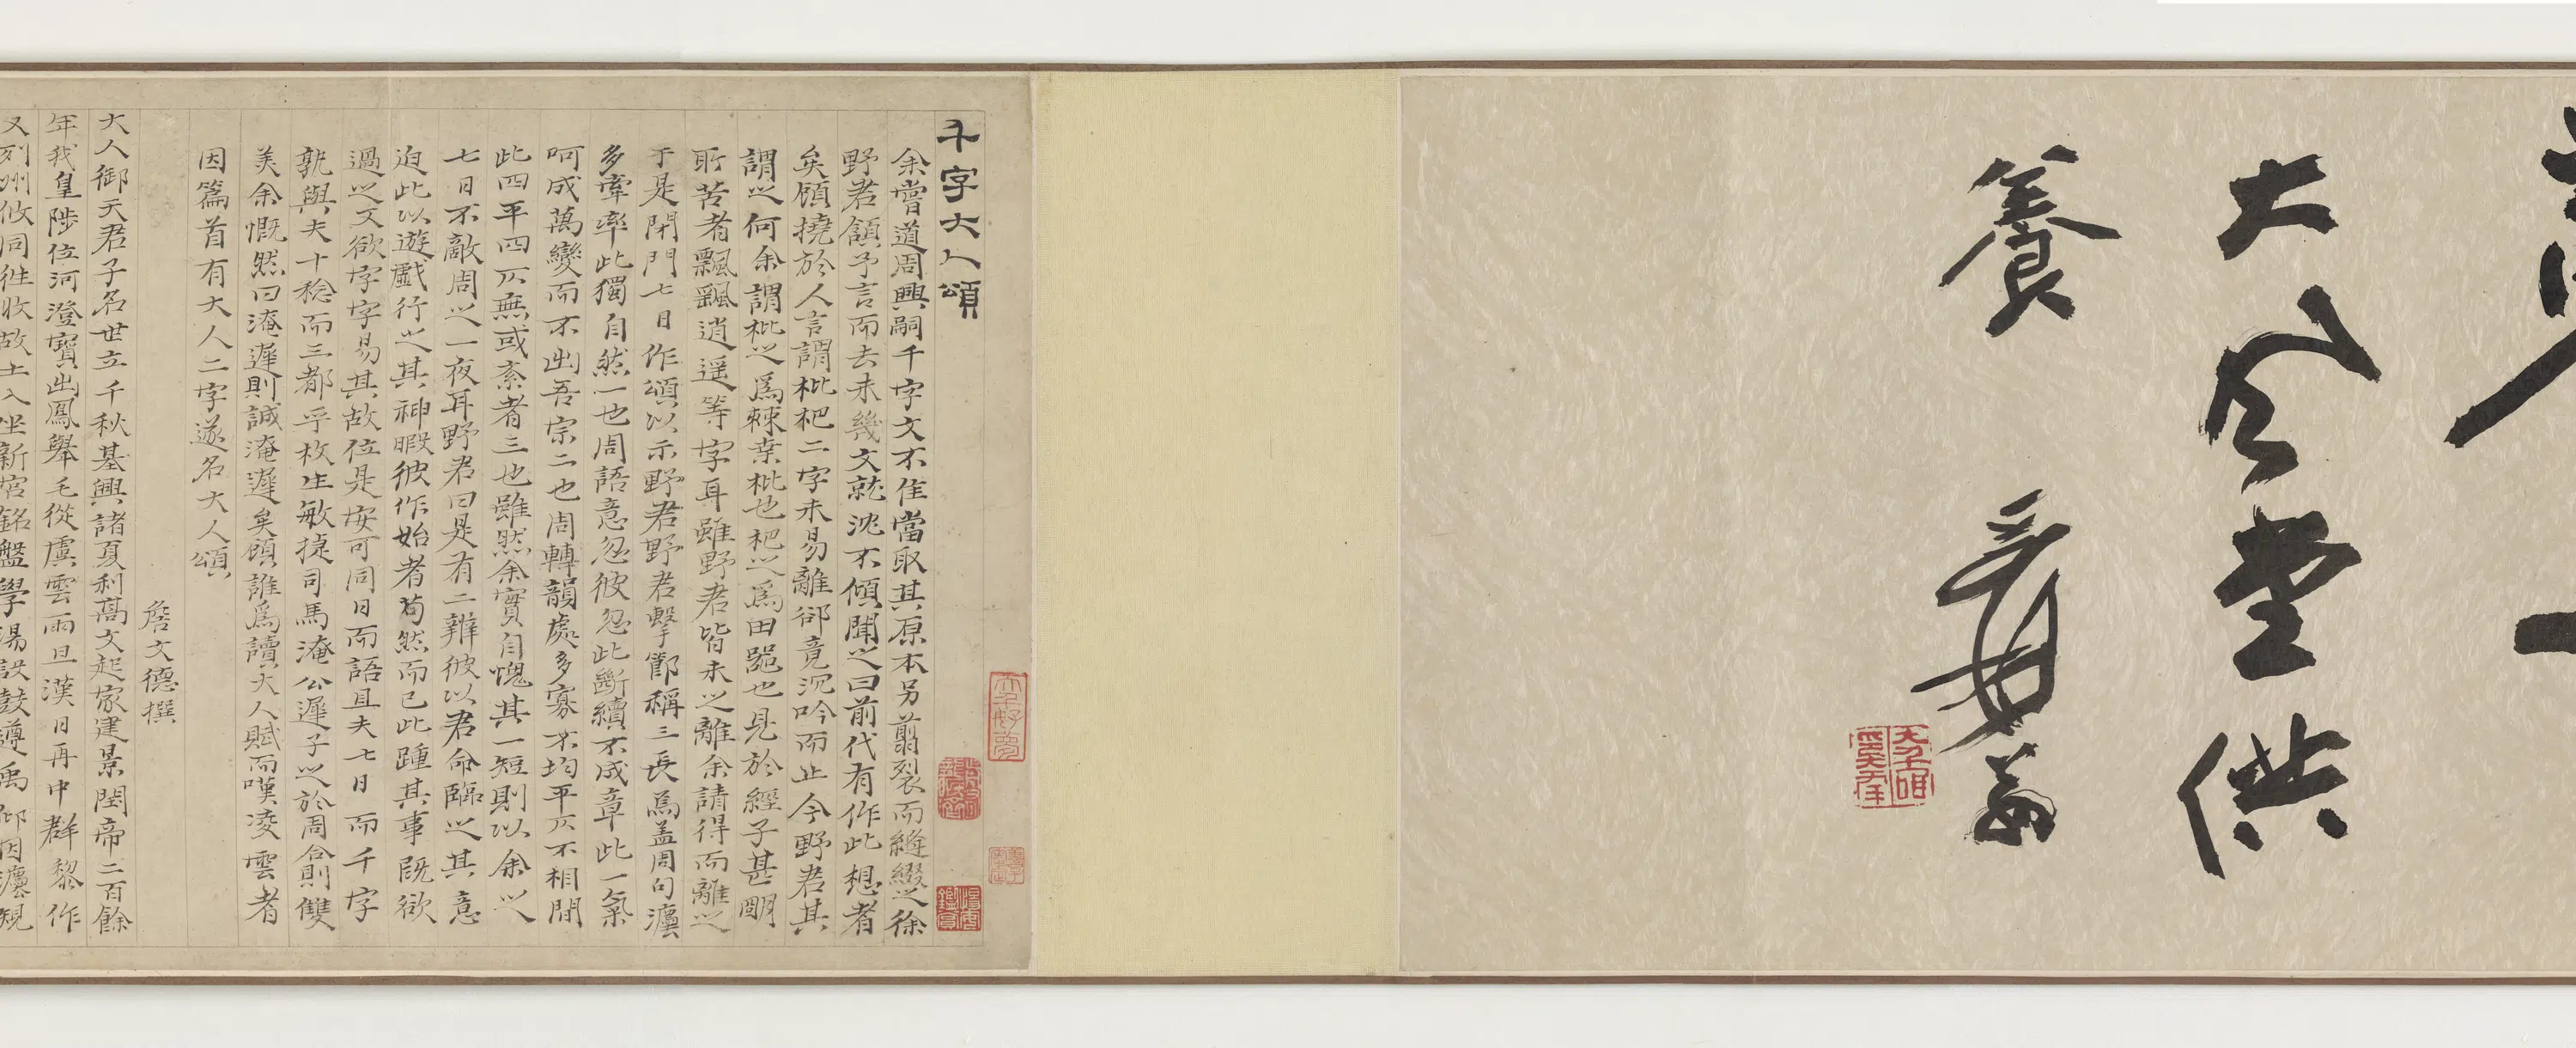 大風堂供
養
爰翁
千字大人頌
余嘗道周興嗣千字文不佳當取其原本另翦裂而縫綴之徐
野君頷予言而去未幾文就沈不傾聞之曰前代有作此想者
矣頎撓於人言謂枇杷二字未易離卻竟沉吟而止今野君其
謂之何余謂枇之為棘枽枇也杷之為田器也見於經子甚明
所苦者飄颻逍遥等字耳雖野君皆未之離余請得而離之
于是閉門七日作頌以示野君野君擊節稱三長焉蓋周句瀆
多牽率此獨自然一也周語意忽彼忽此斷續不成章此一氣
呵成萬變而不出吾宗二也周轉韻處多寡不均平仄不相間
此四平四仄無或紊者三也雖然余實自愧其一短則以余之
七日不敵周之一夜耳野君曰是有二辨彼以君命臨之其意
迫此以遊戲行之其神暇彼作始者苟然而已此踵其事既欲
過之又欲字字易其故位是安可同日而語且夫七日而千字
孰與夫十稔而三都乎枚生敏捷司馬淹公遲子之於周合則雙
美余慨然曰淹遲則誠淹遲矣頎誰為讀大人賦而嘆凌雲者
因篇首有大人二字遂名大人頌
詹文德撰
大人御天君子名世立千秋基興諸夏利高文起家建景閏帝二百餘
年我皇陟位河澄寶出鳳舉毛從虞雲雨旦漢日再中群黎作
又列州攸同往收故土入坐新宮銘盤學湯設鼓遵禹仰因